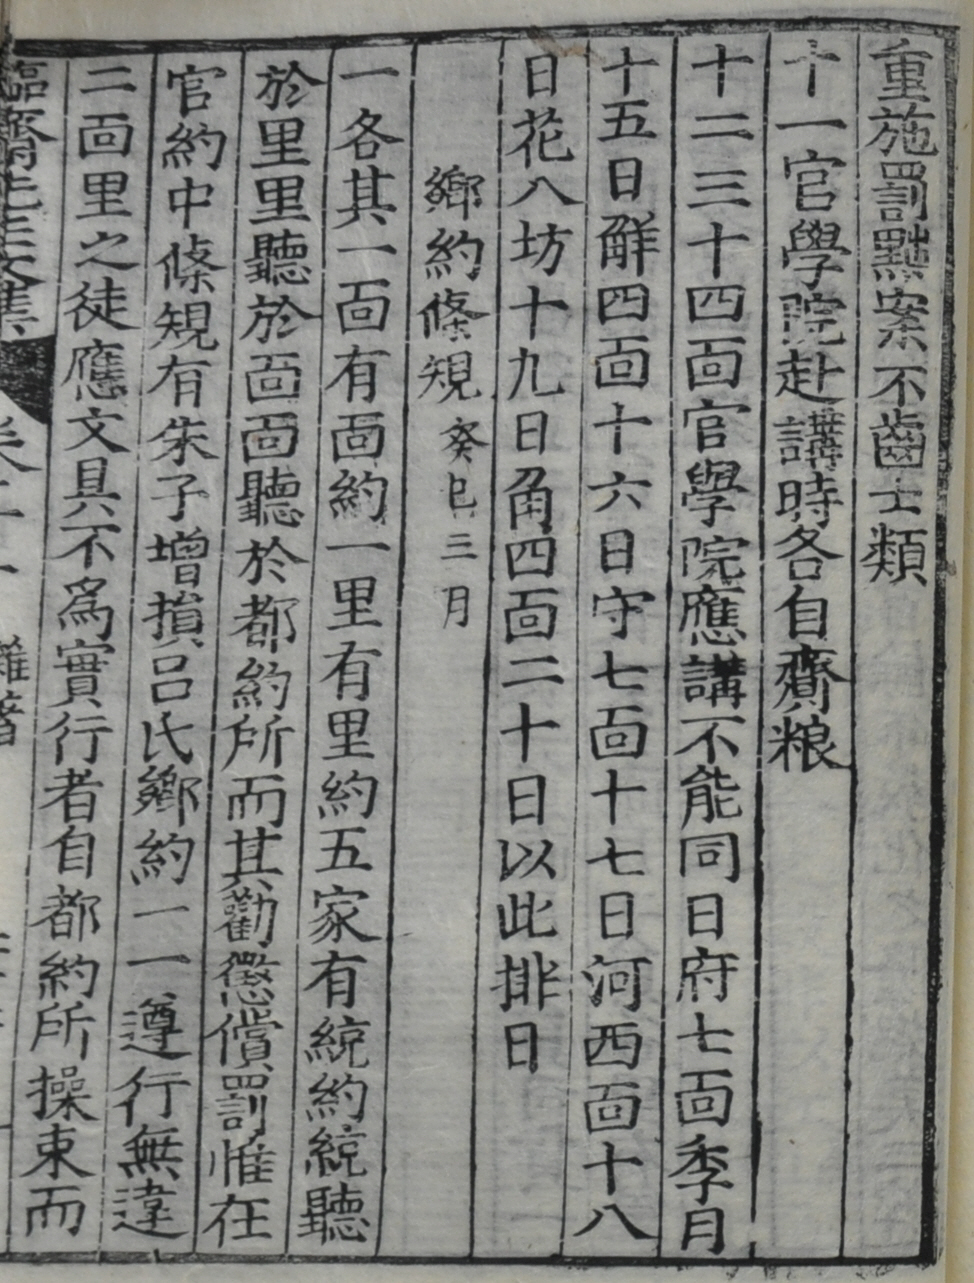 重施罰黜案不齒士類
十一官學院赴講時各自齎粮
十二三十四面官學院應講不能同日府七面季月
十五日鮮四面十六日守七面十七日河西面十八
日花八坊十九日角四面二十日以此排日
鄉約條䂓 癸巳三月
一各其一面有面約一里有里約五家有統約統聽
於里里聽於面面聽於都約所而其勸懲償罰惟在
官約中條䂓有朱子增損呂氏鄉約一一遵行無違
二面里之徒應文具不爲實行者自都約所操束而
臨齋先生文集 卷十 雜著